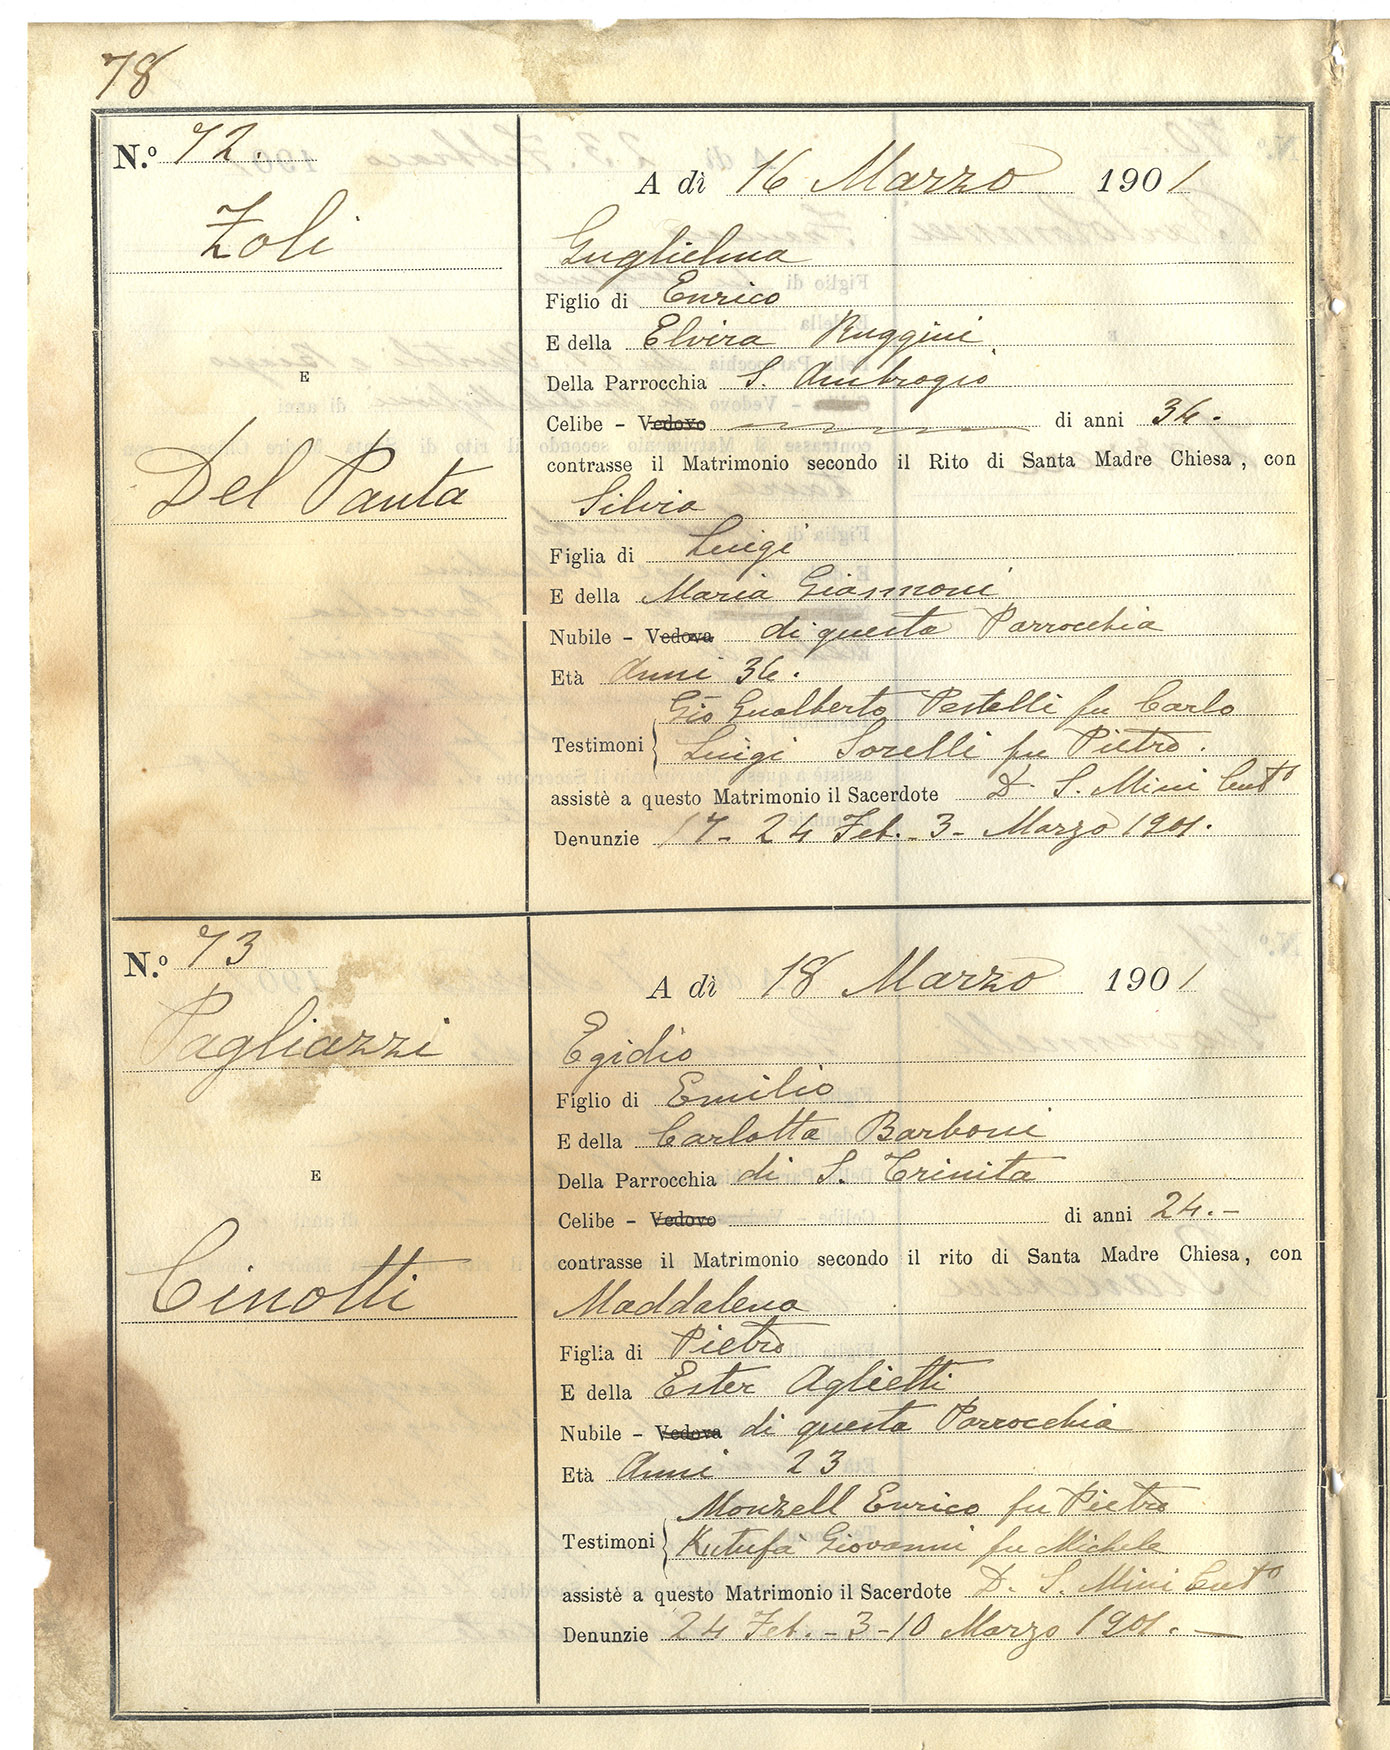 78
N.º 72.
Zoli
E
Del Panta
A dì 16 Marzo 1901
Guglielmo
Figlio di Enrico
E della Elvira Ruggini
Della Parrocchia S. Ambrogio
Celibe - Vedovo di anni 34.
contrasse il Matrimonio secondo il Rito di Santa Madre Chiesa, con
Silvia
Figlia di Luigi
E della Maria Giannoni
Nubile - Vedova di questa Parrocchia
Età Anni 36.
Gio Gualberto Pestelli fu Carlo
Testimoni Luigi Sorelli fu Pietro.
assistè a questo Matrimonio il Sacerdote D. S. Mini
Denunzie 17 - 24 Feb. - 3 - Marzo 1901.
N.º 73
Pagliazzi
E
Cinotti
A dì 18 Marzo 1901
Egidio
Figlio di Emilio
E della Carlotta Barboni
Della Parrocchia di S. Trinita
Celibe - Vedovo di anni 24. -
contrasse il Matrimonio secondo il rito di Santa Madre Chiesa, con
Maddalena
Figlia di Pietro
E della Ester Aglietti
Nubile - Vedova di questa Parrocchia
Età Anni 23
Monzell Enrico fu Pietro
Testimoni Kutufà Giovanni fu Michele
assistè a questo Matrimonio il Sacerdote D. S. Mini
Denunzie 24 Feb. - 3 - 10 Marzo 1901. —